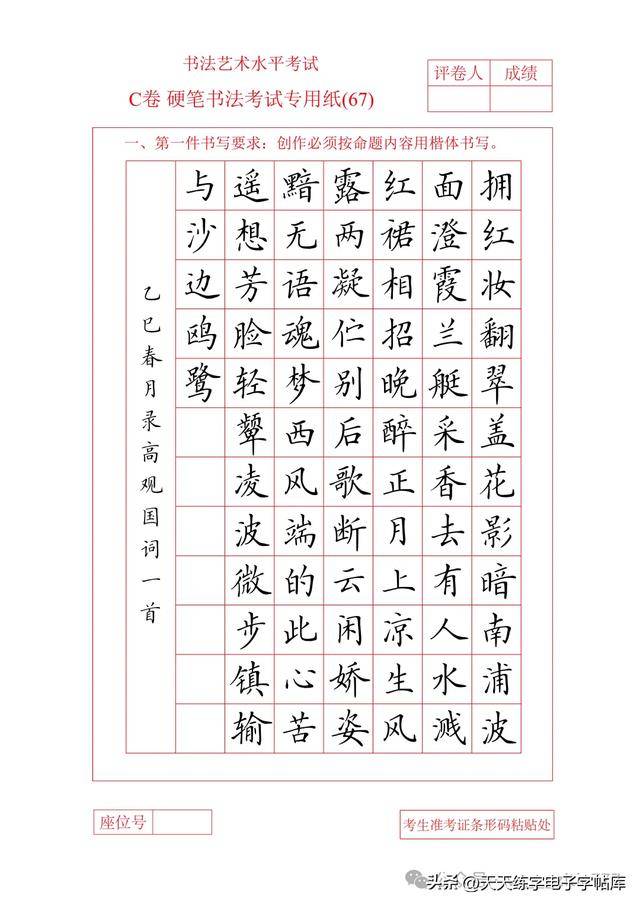 书法艺术水平考试
C卷 硬笔书法考试专用纸(67)
评卷人 成绩
一、第一件书写要求：创作必须按命题内容用楷体书写。
拥红妆翻翠盖花影暗南浦波
面澄霞兰艇采香去有人水溅
红裙相招晚醉正月上凉生风
露两凝伫别后歌断云闲娇姿
黯无语魂梦西风端的此心苦
遥想芳脸轻颦凌波微步镇输
与沙边鸥鹭
乙巳春月录高观国词一首
座位号
考生准考证条形码粘贴处
头条@天天练字电子字帖库